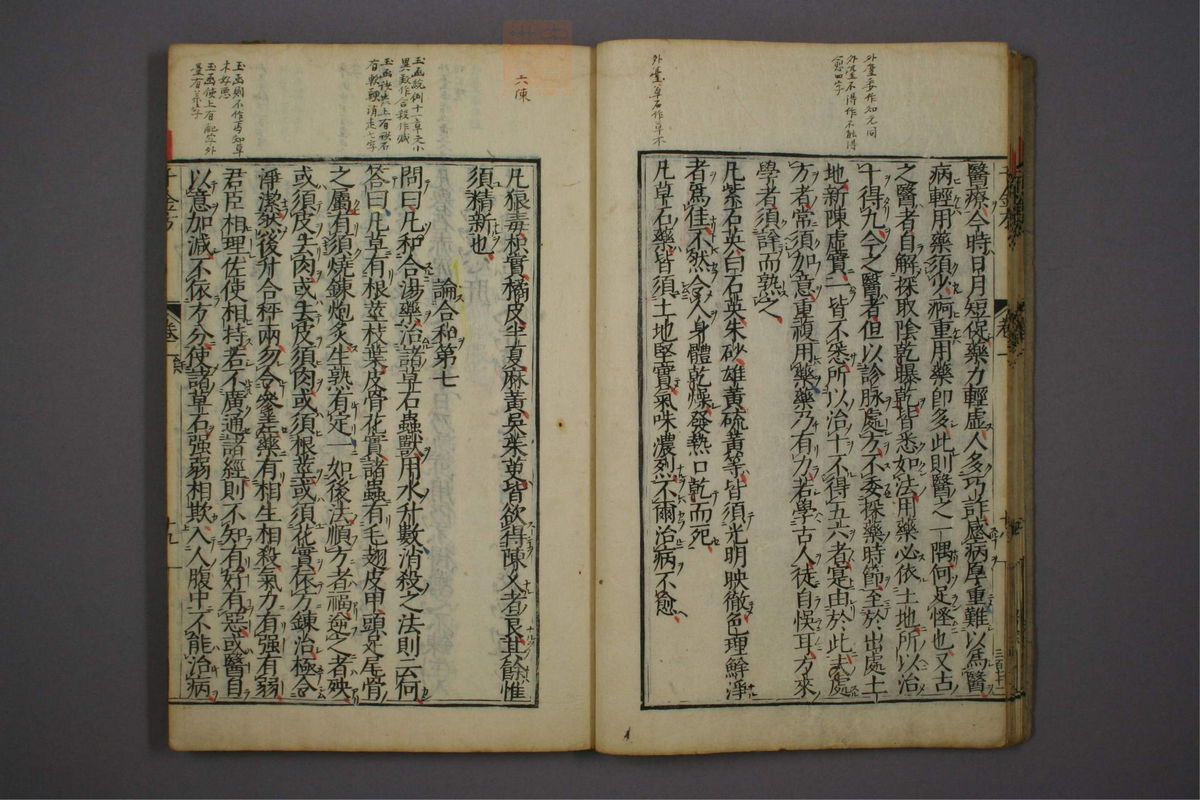 外臺委作如无同
外臺不得作不能得
愈四字
外臺草石作草木
醫療今時日月短促藥力輕虛人多巧詐感病厚重難以爲醫
病輕用藥須少病重用藥即多此則醫之一隅何足怪也又古
之醫者自解採取陰乾曝乾皆悉如法用藥必依土地所以治
十得九今之醫者但以診脉處方不委採藥時節至於出處土
地新陳虛實一皆不悉所以治十不得五六者寔由於此夫處
方者常須加意重複用藥藥乃有力若學古人徒自悞耳方來
學者須詳而熟之
凡紫石英白石英朱砂雄黃硫黃等皆須光明映徹色理鮮淨
者爲佳不然令人身體乾燥發熱口乾而死
凡草石藥皆須土地堅實氣味濃烈不爾治病不愈
六陳
凡狼毒枳實橘皮半夏麻黃吳茱萸皆欲得陳久者良其餘惟
須精新也
論合和第七
問曰凡和合湯藥治諸草石蟲獸用水升數消殺之法則云何
答曰凡草有根莖枝葉皮骨花實諸蟲有毛翅皮甲頭足尾骨
之屬有須燒鍊炮炙生熟有定一如後法順方者福逆之者殃
或須皮去肉或去皮須肉或須根莖或須花實依方鍊治極令
淨潔然後升合秤兩勿令參差藥有相生相殺氣力有强有弱
君臣相理佐使相持若不廣通諸經則不知有好有惡或醫自
以意加減不依方分使諸草石强弱相欺入人腹中不能治病
千金方
卷一
十九